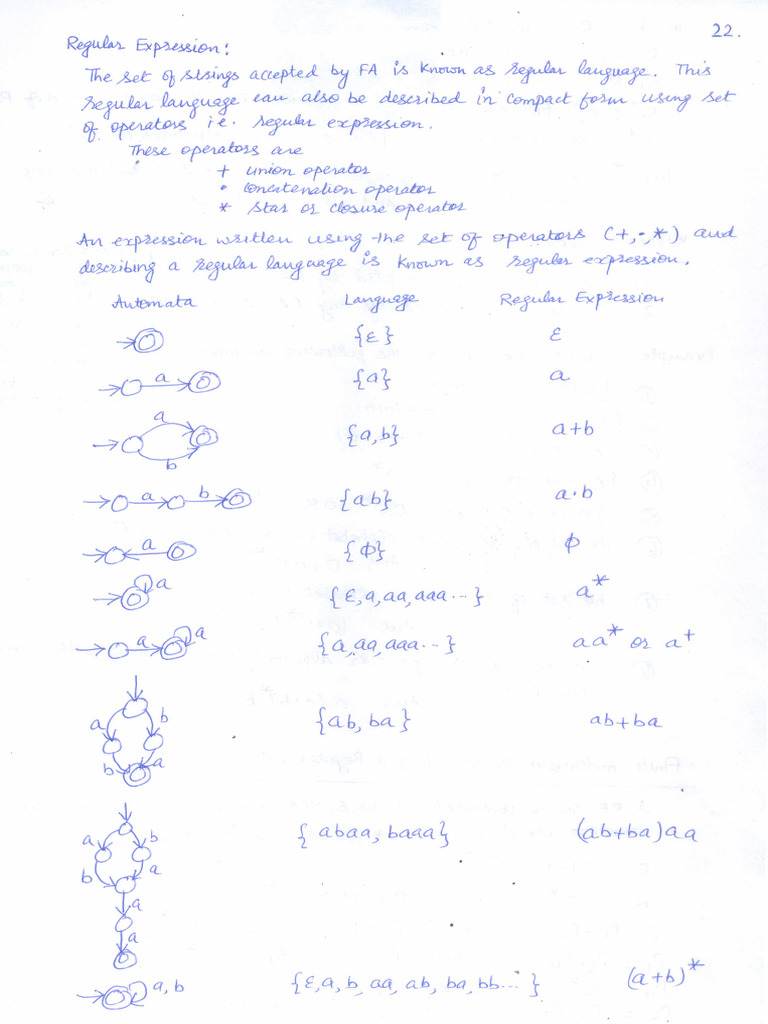 22.
Regular Expression:
The set of strings accepted by FA is known as regular language. This
regular language can also be described in compact form using set
of operators i.e. regular expression.
These operators are
+ union operator
• concatenation operator
* star or closure operator
An expression written using the set of operators (+,·,*) and
describing a regular language is known as regular expression.
Automata Language Regular Expression
{ε} ε
a {a} a
a b {a,b} a+b
a b {ab} a·b
a {Φ} Φ
a {ε,a,aa,aaa...} a*
a a {a,aa,aaa...} aa* or a+
a b b a {ab, ba} ab+ba
a b b a a a {abaa, baaa} (ab+ba)aa
a, b {ε,a,b,aa,ab,ba,bb...} (a+b)*